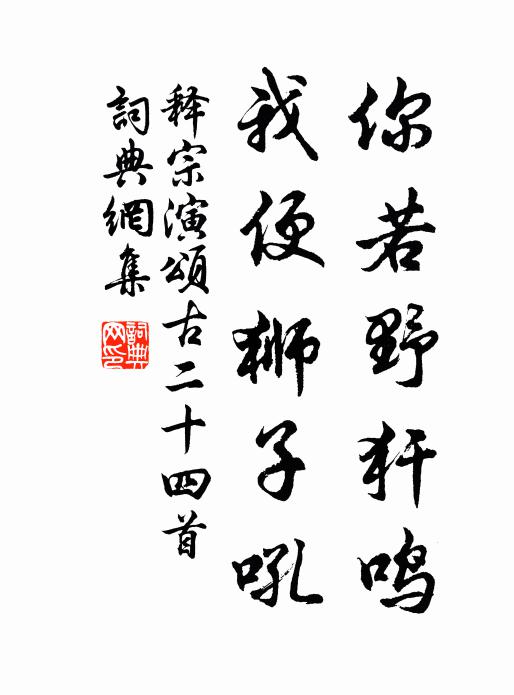 你若野犴鸣
我便狮子吼
释宗演頌古二十四首
詞典網集
詞典網印